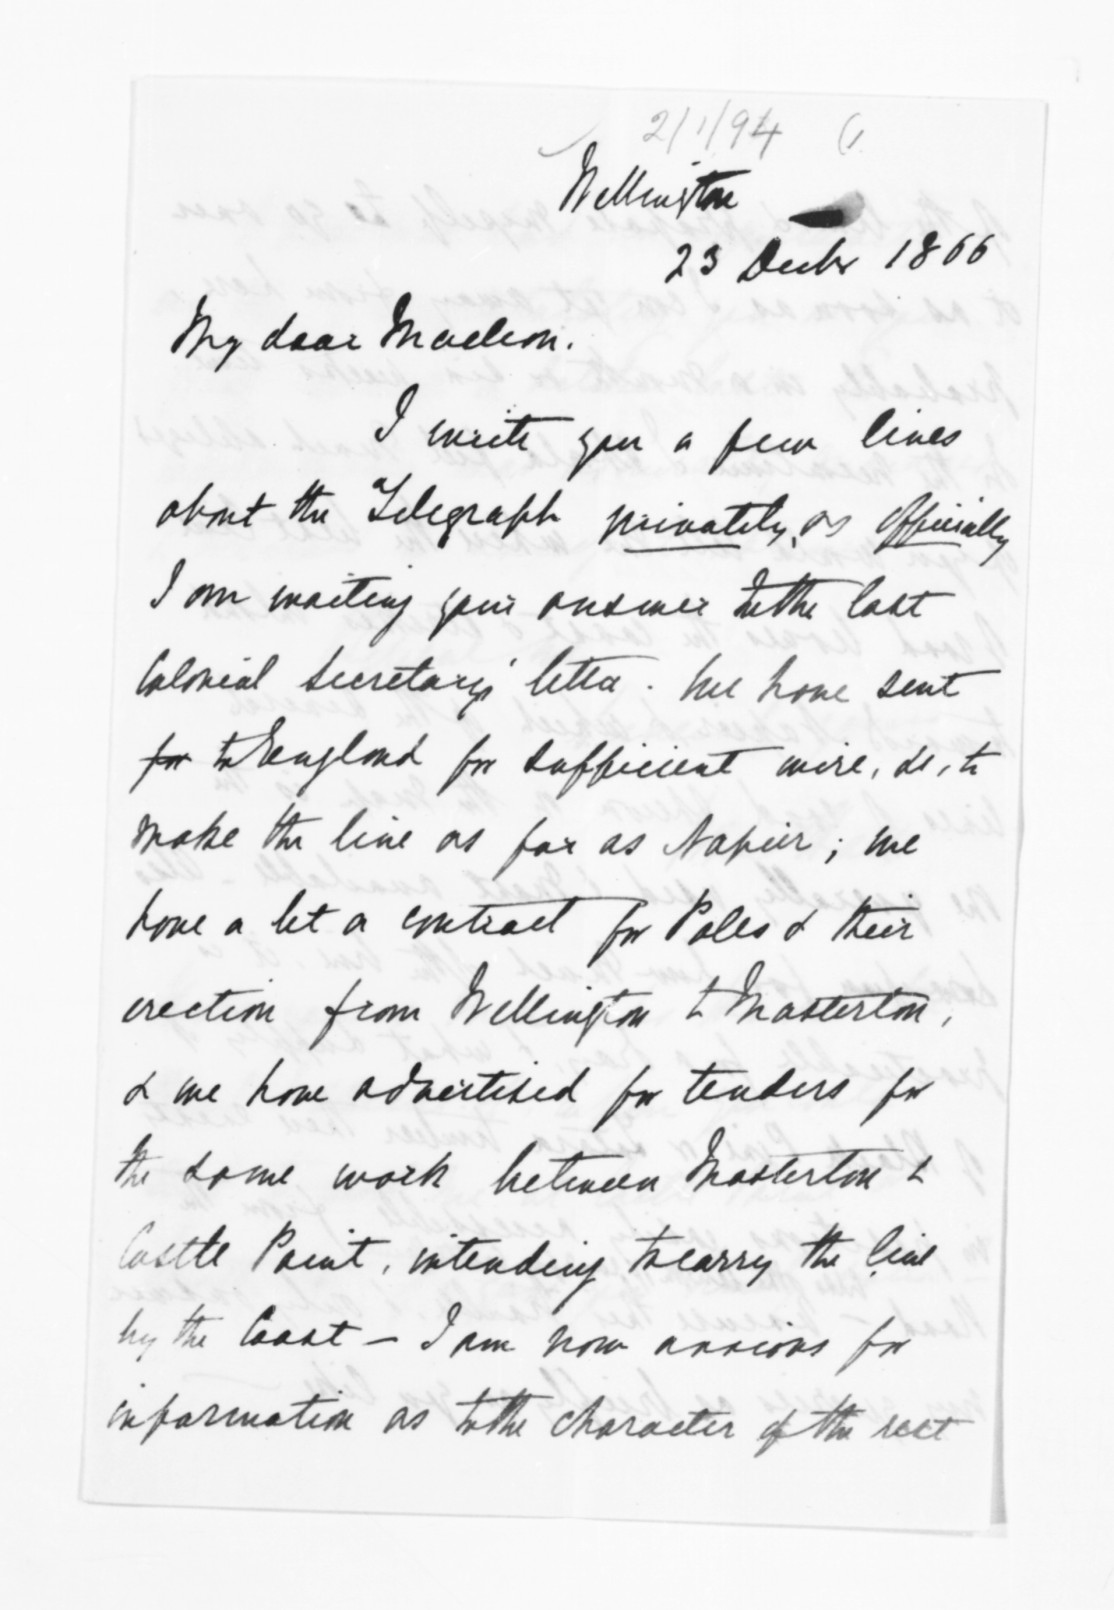 2/1/94
Wellington
23 Decbr 1866
My dear Maclean.
I write you a few lines
about the Telegraph privately, as officially
I am waiting your answer to the last
Colonial Secretary's letter. We have sent
for to England for sufficient wire, &c, to
make the line as far as Napier; we
have a let a contract for Poles & their
erection from Wellington to Masterton,
& we have advertised for tenders for
the same work between Masterton &
Castle Point, intending to carry the line
by the Coast — I am now anxious for
information as to the character of the rest